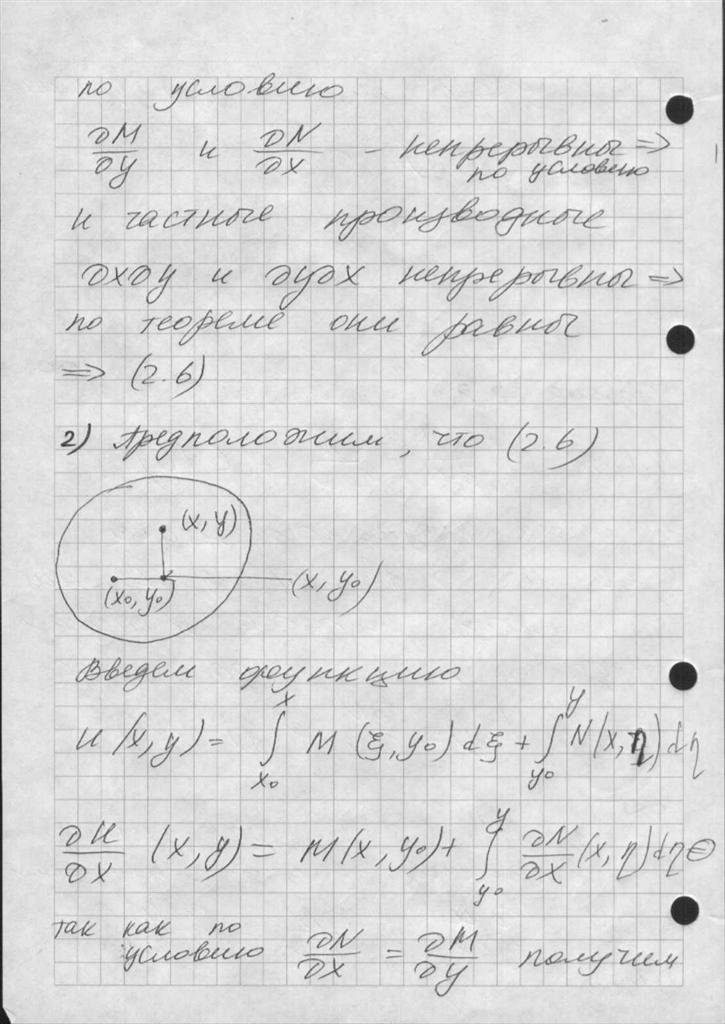 по условию
∂M/∂y и ∂N/∂x - непрерывны ⇒
по условию
и частные производные
∂x∂y и ∂y∂x непрерывны ⇒
по теореме они равны
⇒ (2.6)
2) Предположим, что (2.6)
(x, y)
(x₀, y₀) (x, y₀)
Введем функцию
u(x, y) = ∫_{x₀}^{x} M(ξ, y₀) dξ + ∫_{y₀}^{y} N(x, η) dη
∂u/∂x (x, y) = M(x, y₀) + ∫_{y₀}^{y} ∂N/∂x (x, η) dη ⊖
так как по
условию ∂N/∂x = ∂M/∂y получим